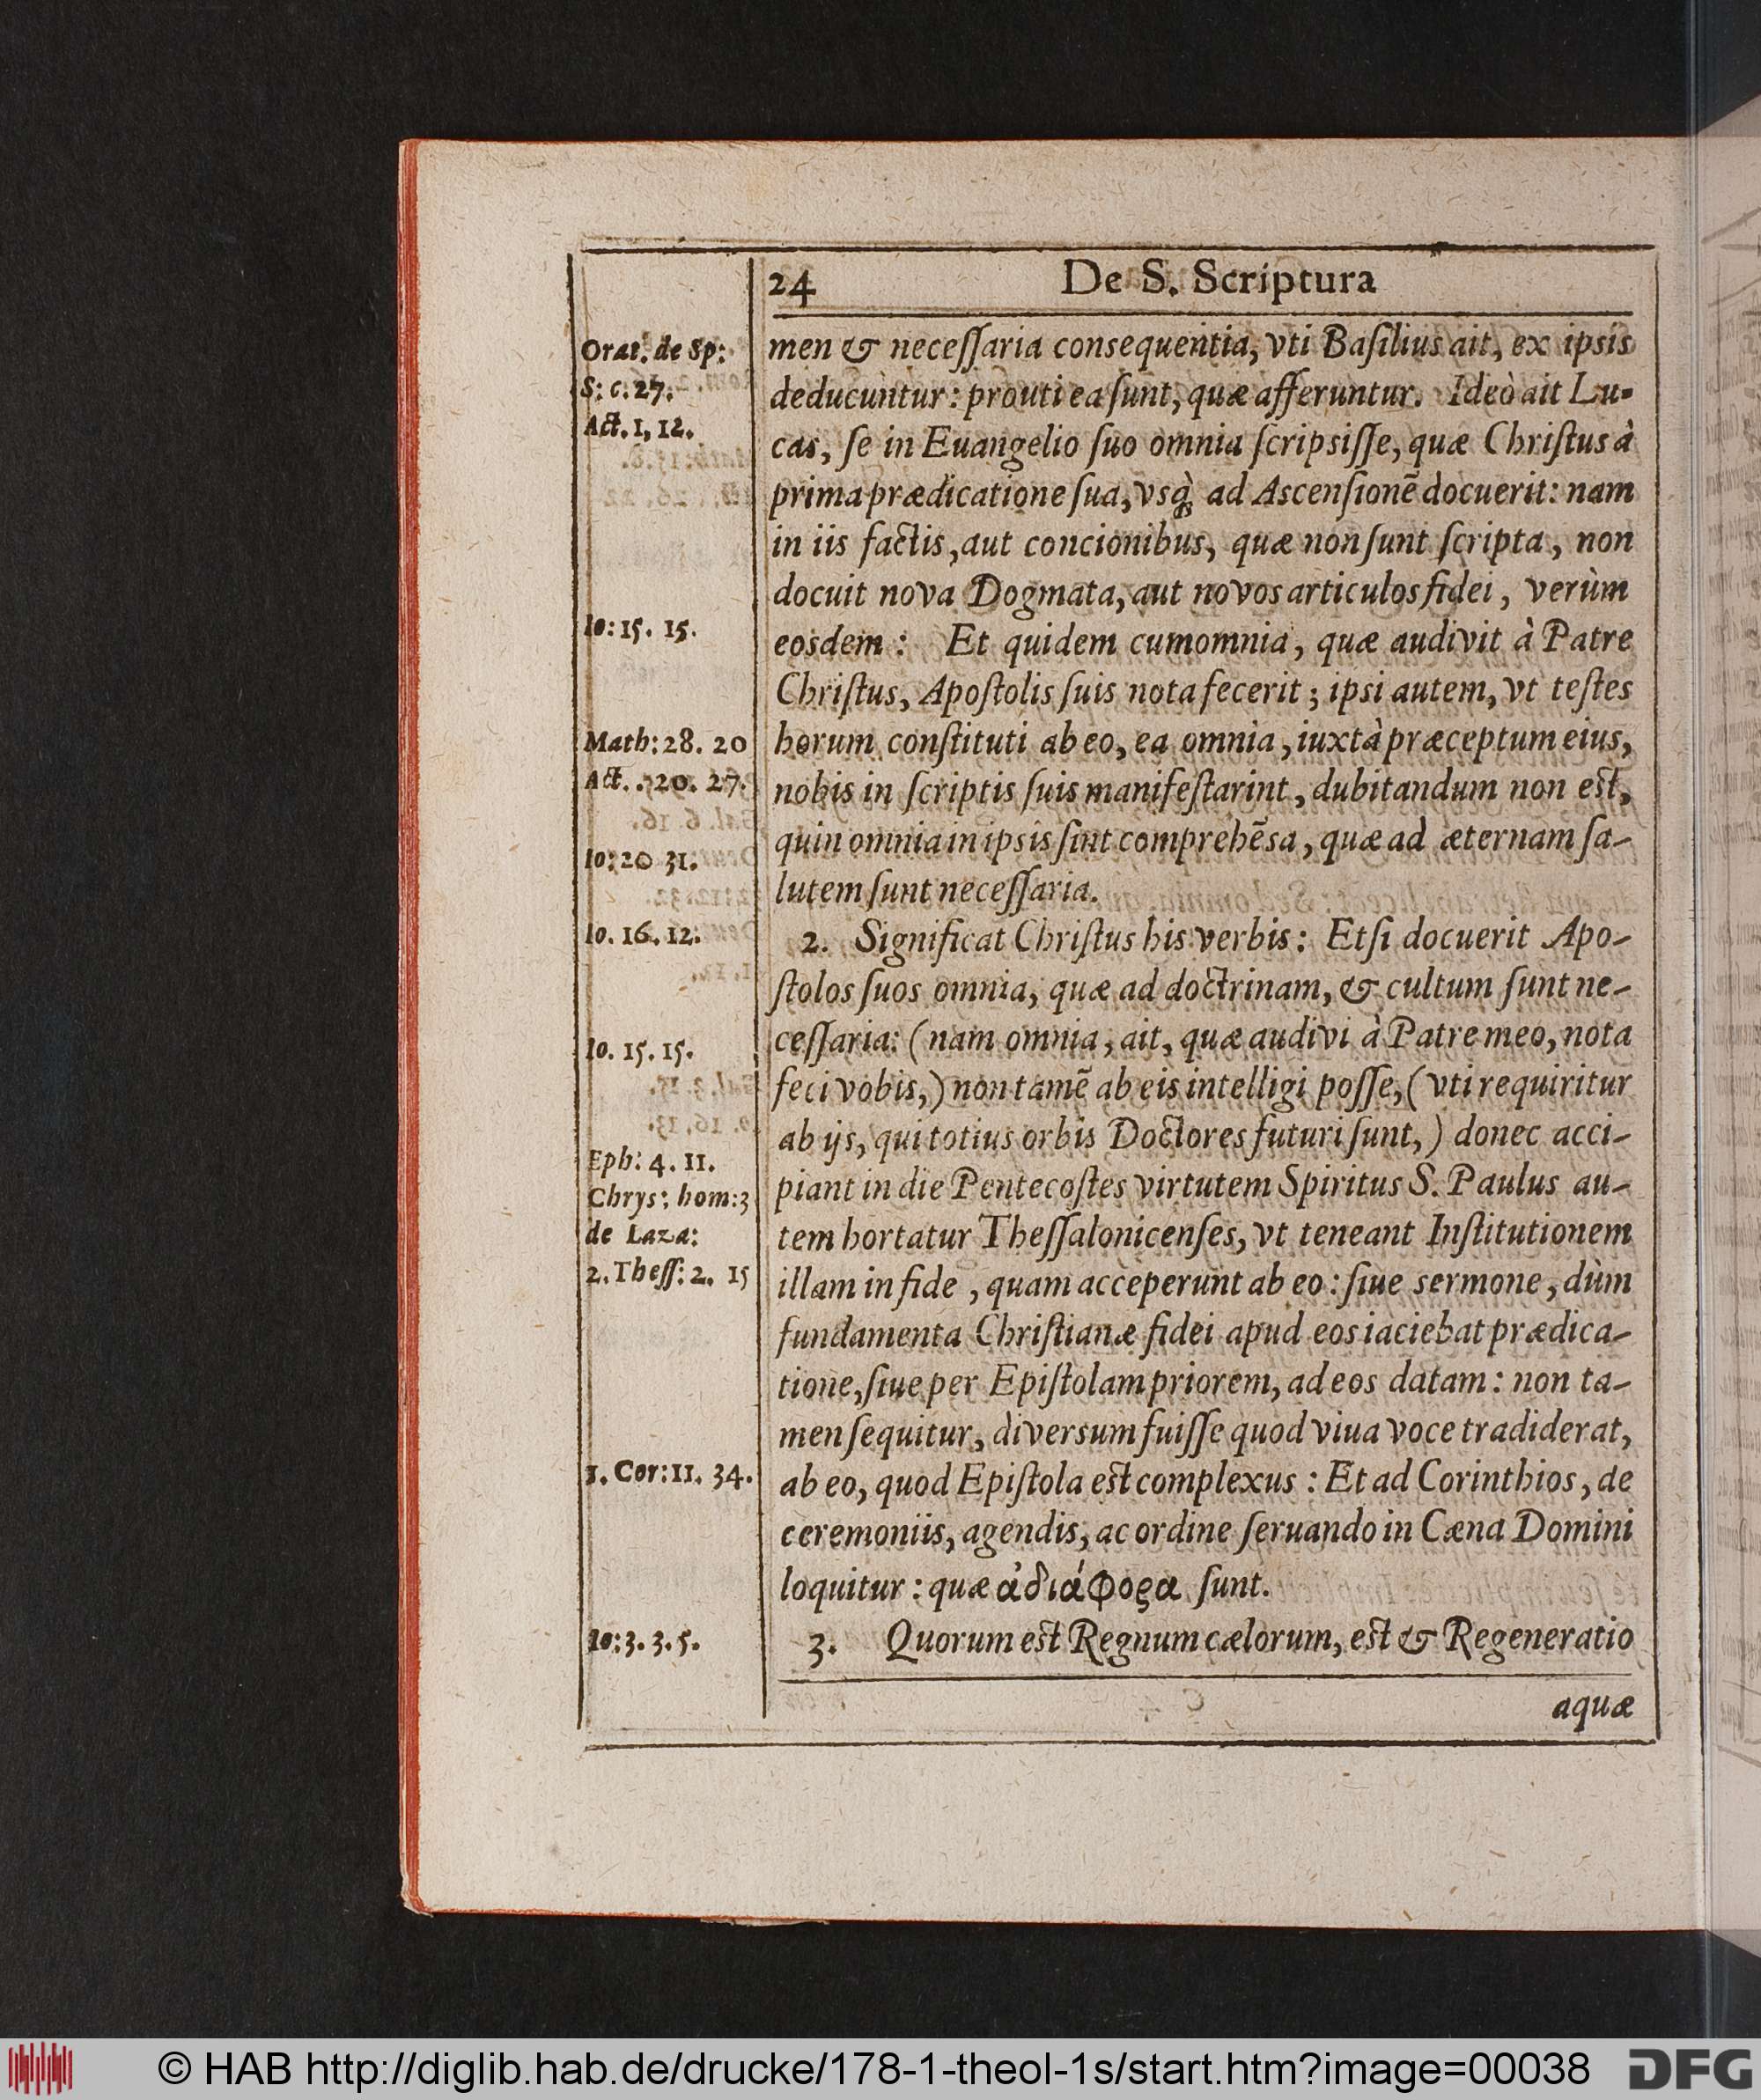 24 De S. Scriptura
Orat. de Sp:
S: c. 27.
Act. 1, 12.
Io: 15. 15.
Math: 28. 20
Act. . 20. 27.
Io: 20 31.
Io. 16. 12.
Io. 15. 15.
Eph: 4. 11.
Chrys: hom: 3
de Laza:
2. Theſſ: 2. 15
1. Cor: 11. 34.
Io: 3. 3. 5.
men & neceſſaria consequentia, vti Baſilius ait, ex ipsis
deducuntur: prouti ea ſunt, quæ afferuntur. Ideò ait Lu-
cas, ſe in Euangelio ſuo omnia ſcripsiſſe, quæ Chriſtus à
prima prædicatione ſua, vsq̀; ad Ascenſionē docuerit: nam
in iis factis, aut concionibus, quæ non ſunt ſcripta, non
docuit nova Dogmata, aut novos articulos fidei, verùm
eosdem: Et quidem cum omnia, quæ audivit à Patre
Chriſtus, Apoſtolis ſuis nota fecerit; ipsi autem, vt teſtes
horum conſtituti ab eo, ea omnia, iuxtà præceptum eius,
nobis in ſcriptis ſuis manifeſtarint, dubitandum non eſt,
quin omnia in ipsis ſint comprehēsa, quæ ad æternam ſa-
lutem ſunt neceſſaria.
2. Significat Chriſtus his verbis: Etſi docuerit Apo-
ſtolos ſuos omnia, quæ ad doctrinam, & cultum ſunt ne-
ceſſaria: (nam omnia, ait, quæ audivi à Patre meo, nota
feci vobis,) non tamē ab eis intelligi poſſe, (vti requiritur
ab ijs, qui totius orbis Doctores futuri ſunt,) donec acci-
piant in die Pentecoſtes virtutem Spiritus S. Paulus au-
tem hortatur Theſſalonicenſes, vt teneant Inſtitutionem
illam in fide, quam acceperunt ab eo: ſiue sermone, dùm
fundamenta Chriſtianæ fidei apud eos iaciebat prædica-
tione, ſiue per Epiſtolam priorem, ad eos datam: non ta-
men ſequitur, diversum fuiſſe quod viua voce tradiderat,
ab eo, quod Epiſtola eſt complexus: Et ad Corinthios, de
ceremoniis, agendis, ac ordine ſeruando in Cæna Domini
loquitur: quæ ἀδιάφορα ſunt.
3. Quorum eſt Regnum cælorum, eſt & Regeneratio
aquæ
© HAB http://diglib.hab.de/drucke/178-1-theol-1s/start.htm?image=00038
DFG